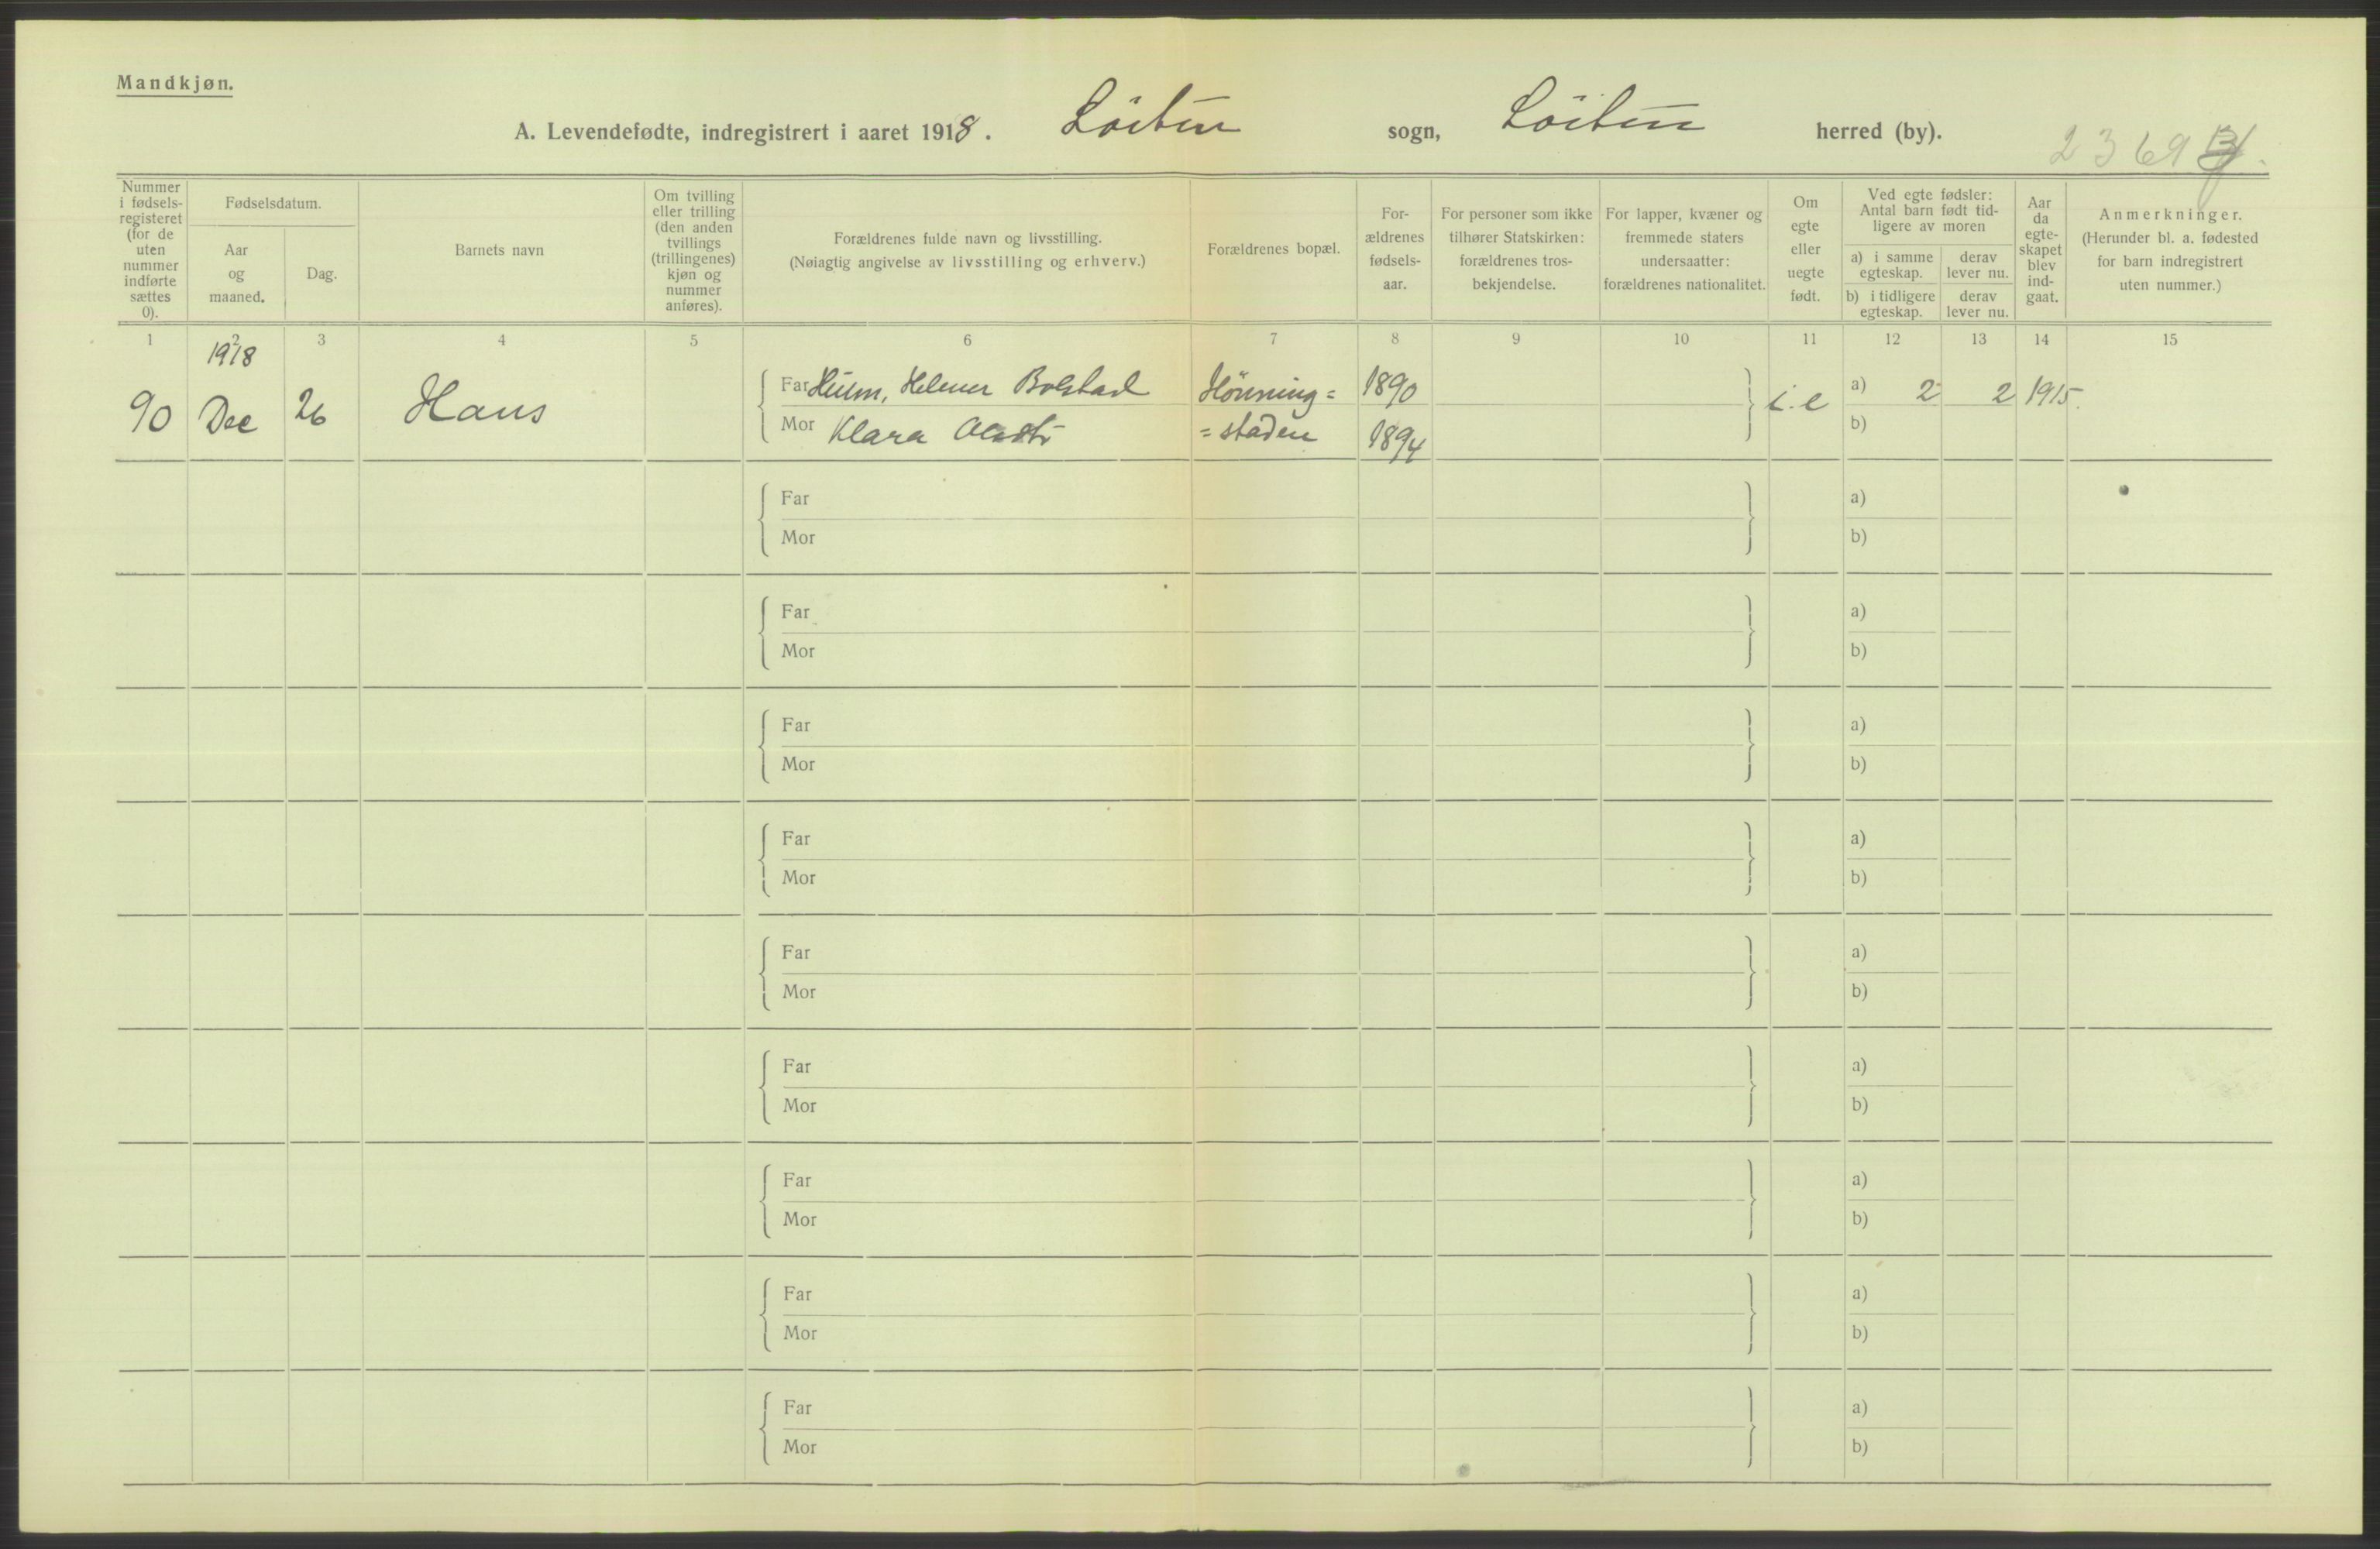 Mandkjøn.
A. Levendefødte, indregistrert i aaret 1918. Löiten sogn, Löiten herred (by).
2369
Nummer i fødsels-registeret (for de uten nummer indførte sættes 0).
Fødselsdatum.
Aar og maaned.
Dag.
Barnets navn
Om tvilling eller trilling (den anden tvillings (trillingenes) kjøn og nummer anføres).
Forældrenes fulde navn og livsstilling.
(Nøiagtig angivelse av livsstilling og erhverv.)
Forældrenes bopæl.
For-ældrenes fødsels-aar.
For personer som ikke tilhører Statskirken: forældrenes tros-bekjendelse.
For lapper, kvæner og fremmede staters undersaatter: forældrenes nationalitet.
Om egte eller uegte født.
Ved egte fødsler: Antal barn født tid-ligere av moren
a) i samme egteskap. derav lever nu.
b) i tidligere egteskap. derav lever nu.
Aar da egte-skapet blev ind-gaat.
Anmerkninger.
(Herunder bl. a. fødested for barn indregistrert uten nummer.)
1 2 3 4 5 6 7 8 9 10 11 12 13 14 15
1918
90 Dec 26 Hans
Far Helmer Bolstad Hönning= 1890 i.e a) 2 2 1915.
Mor Klara =staden 1894 b)
Far a)
Mor b)
Far a)
Mor b)
Far a)
Mor b)
Far a)
Mor b)
Far a)
Mor b)
Far a)
Mor b)
Far a)
Mor b)
Far a)
Mor b)
Far a)
Mor b)